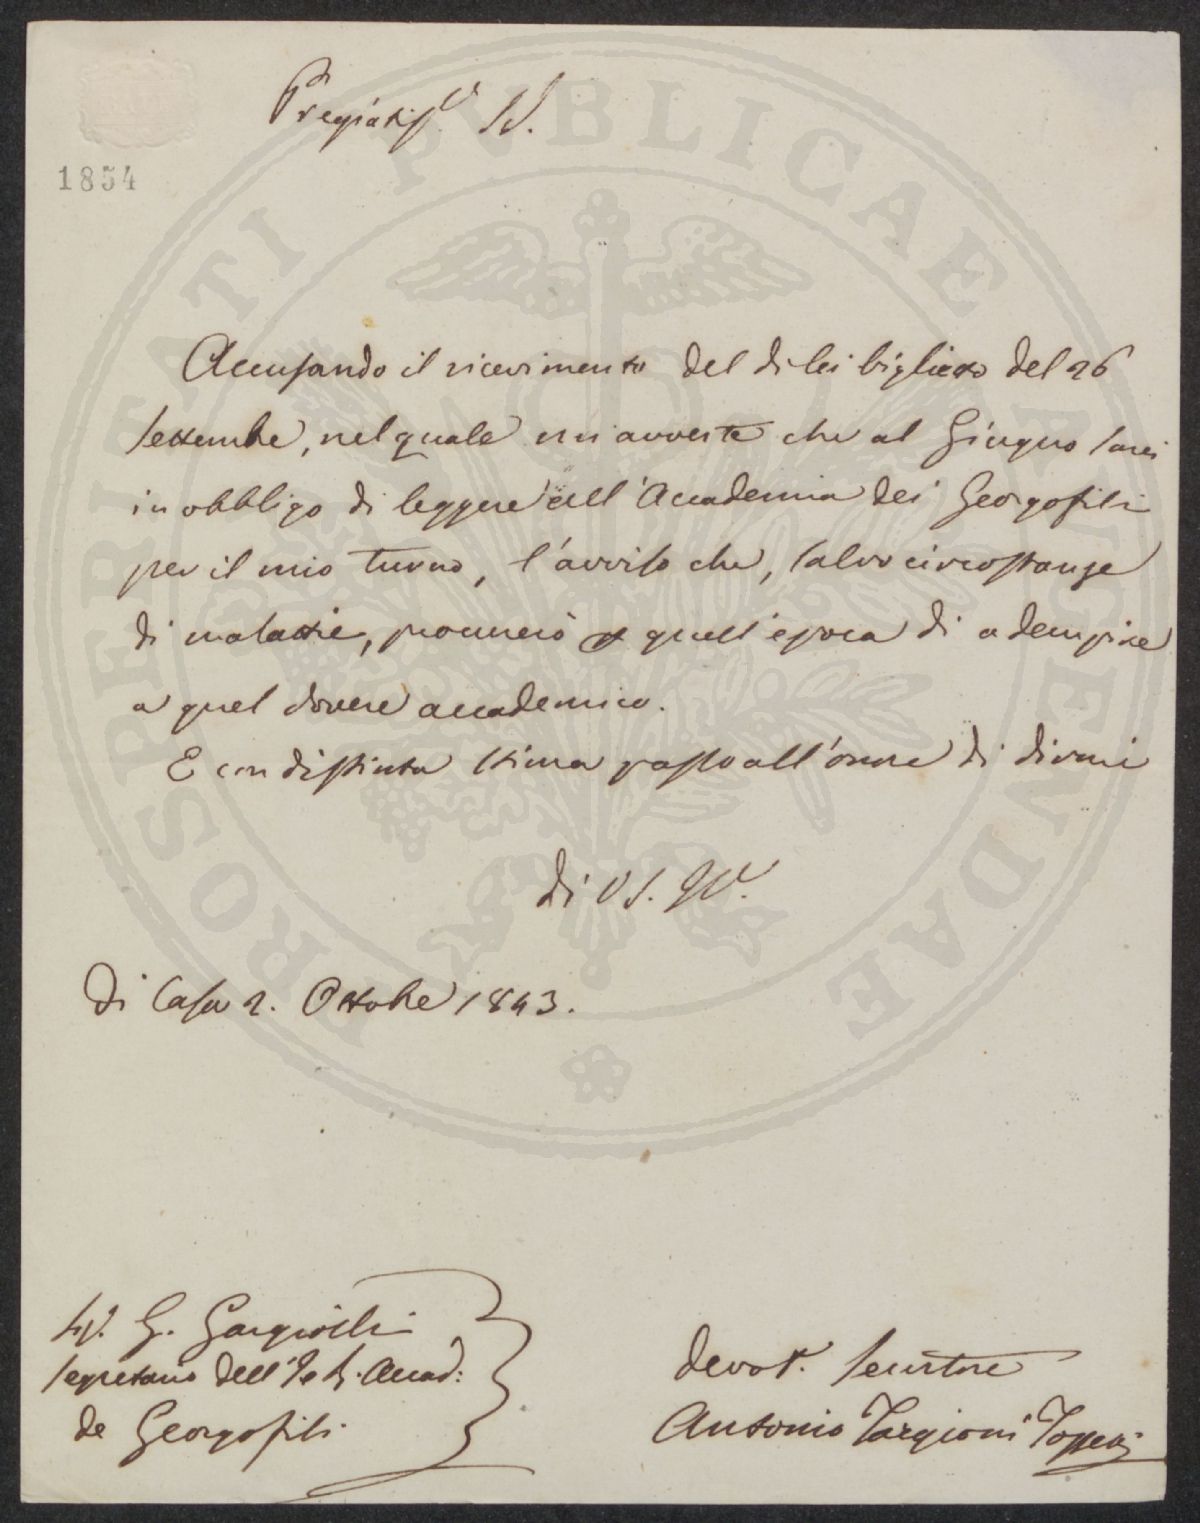 Pregiatis.º Sr.
1854
Accusando il ricevimento del di lei biglietto del 26
settembre, nel quale mi avverte che al Giugno sarei
in obbligo di leggere all'Accademia dei Georgofili
per il mio turno, l'avviso che, salvo circostanze
di malattie, procurerò a quell'epoca di adempire
a quel dovere accademico.
E con distinta stima passo all'onore di dirmi
di VS. Ill.
Di Casa 2. Ottobre 1843.
Sig. G. Gargiolli
Segretario dell'I e R. Accad:
de Georgofili
devot. Servitore
Antonio Targioni Tozzetti
PROSPERITATI PVBLICAE AVGENDAE